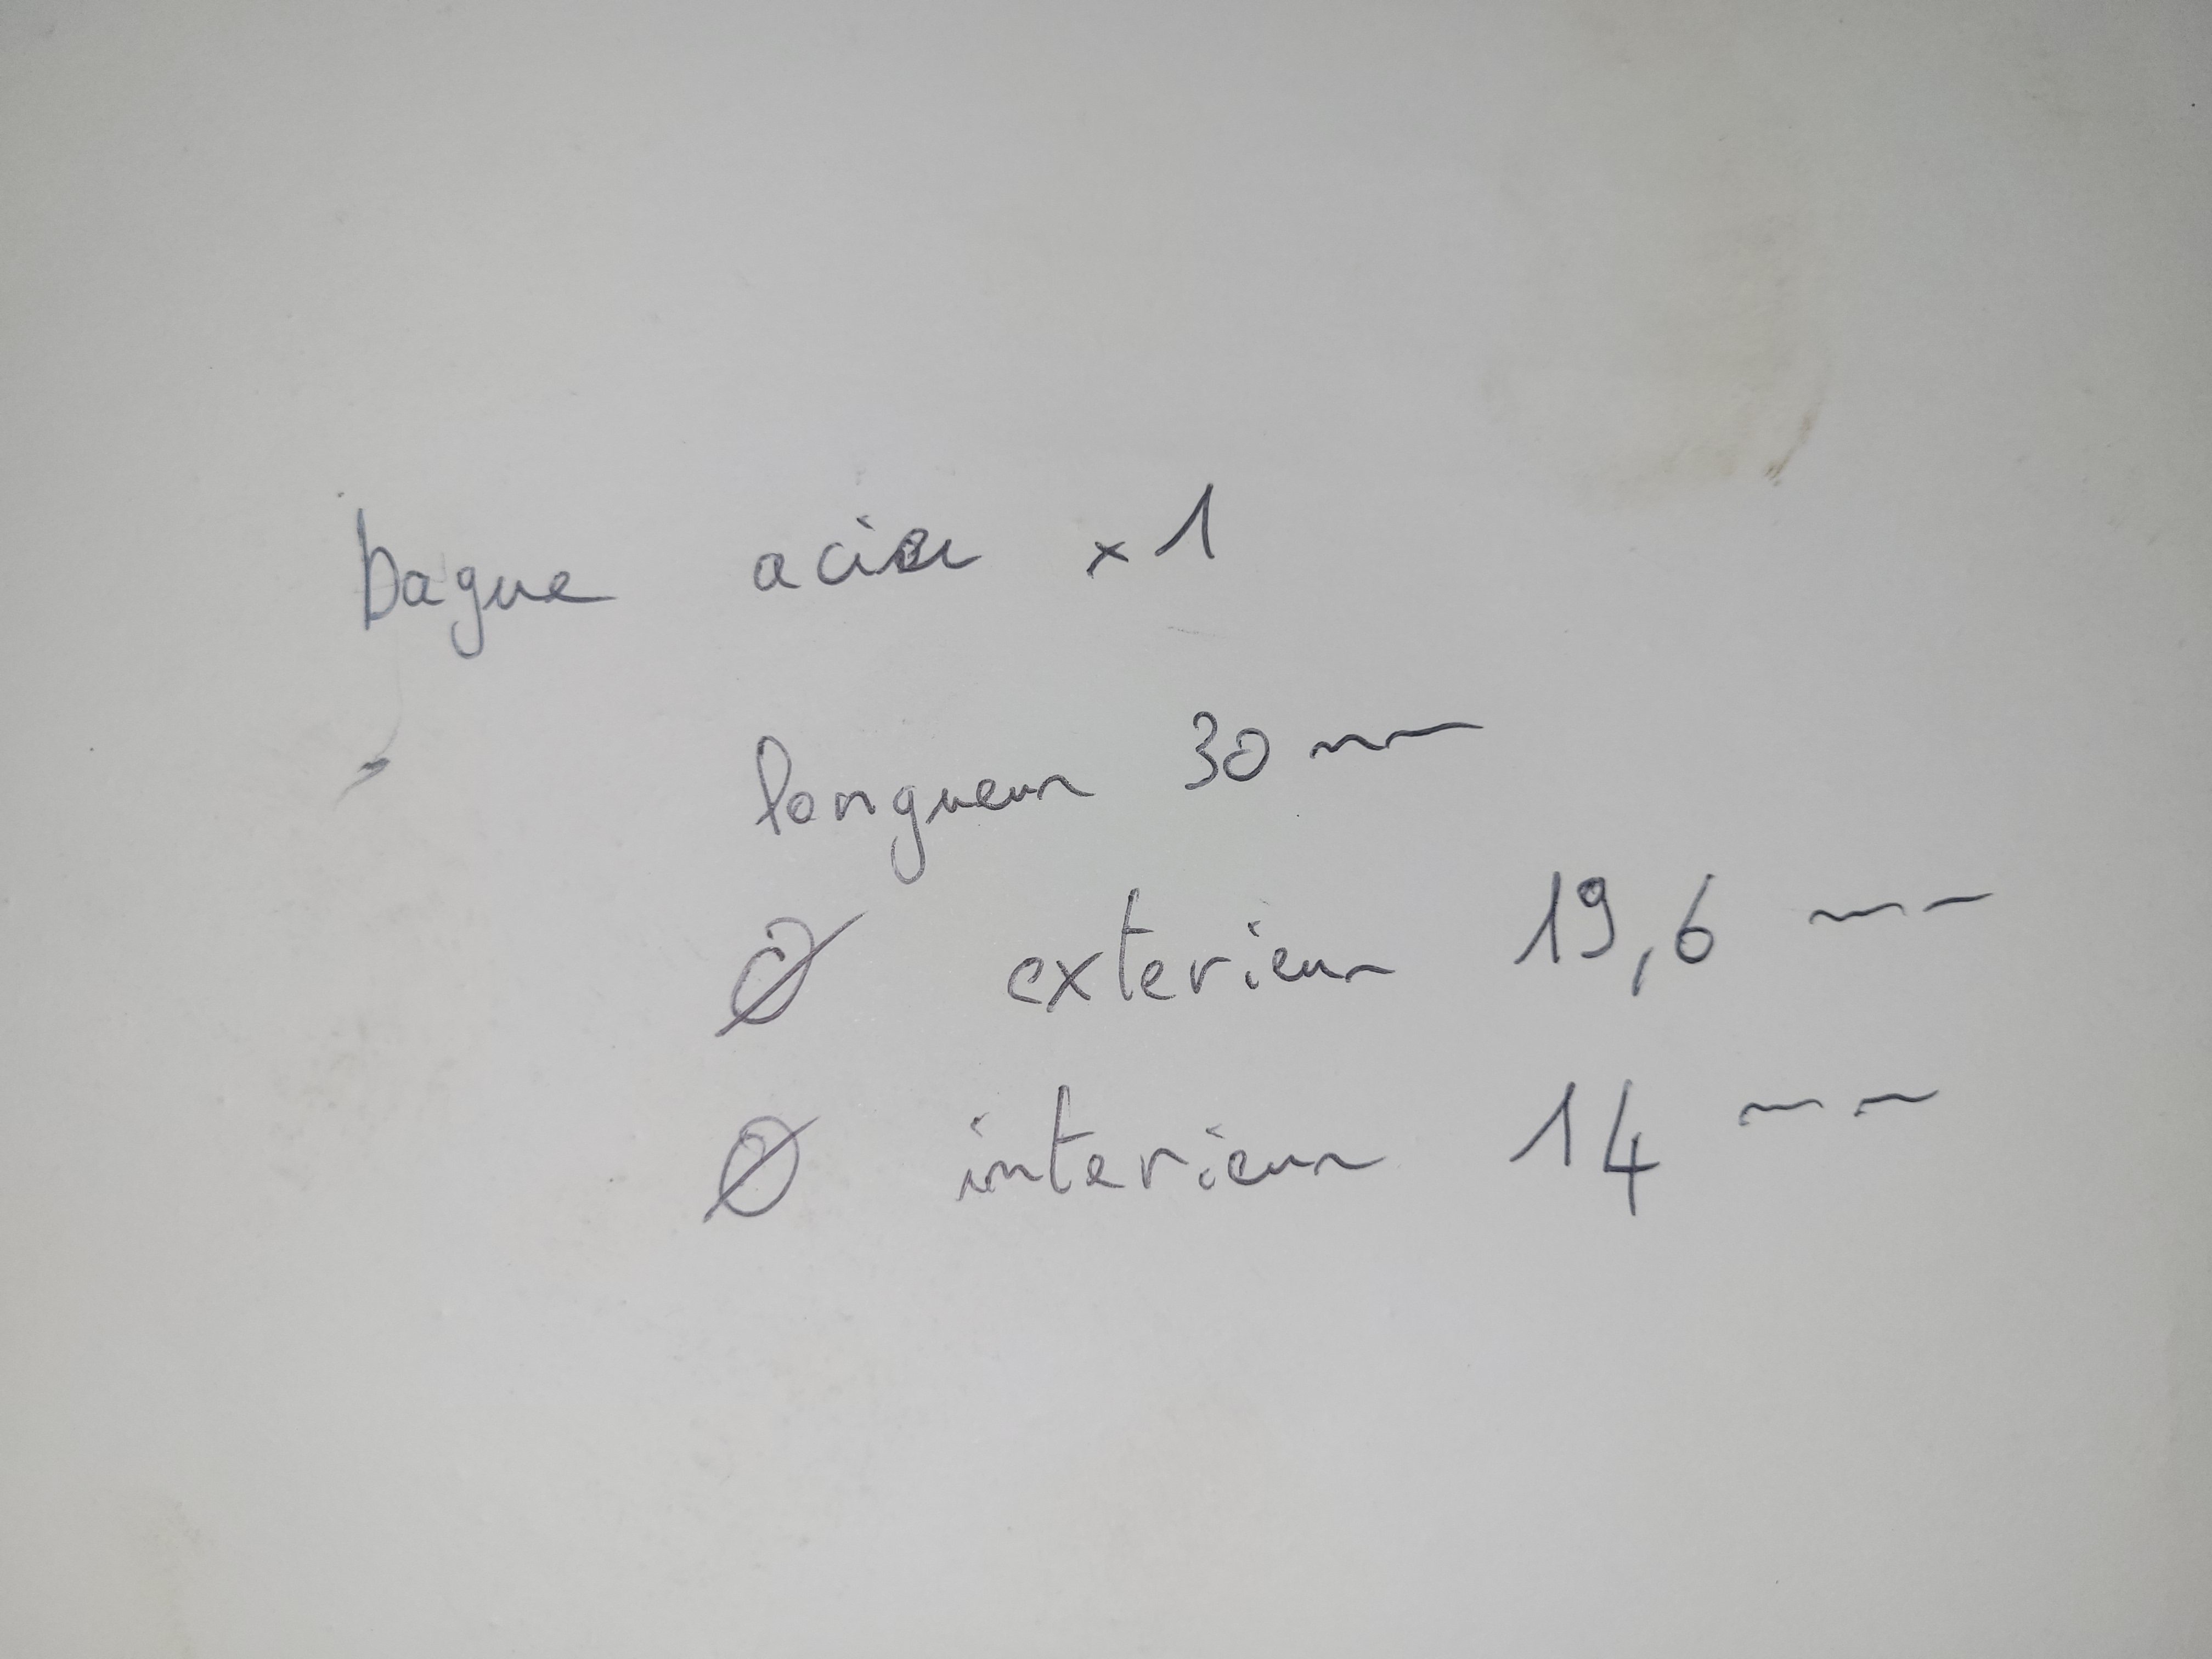 bague acier x 1
longueur 30 mm
Ø exterieur 19,6 mm
Ø interieur 14 mm